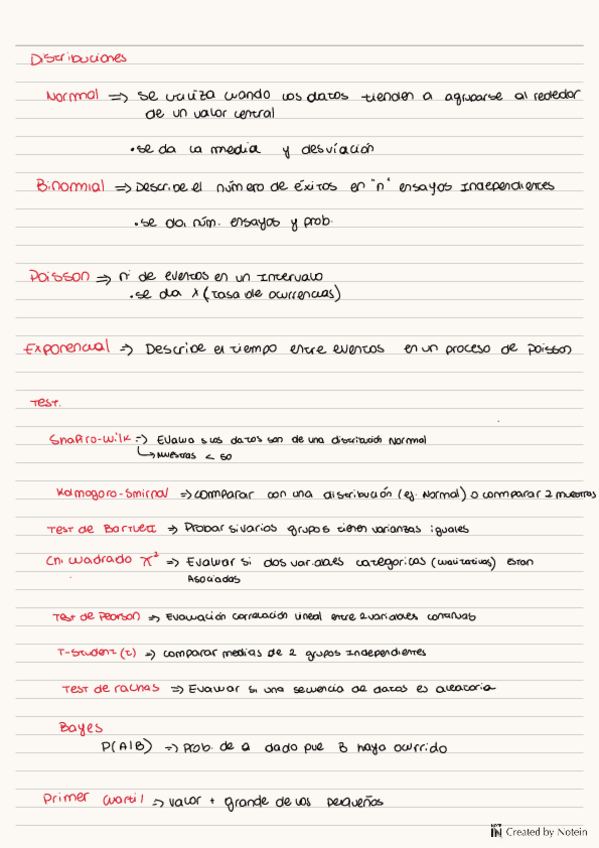 Distribuciones
Normal => se utiliza cuando los datos tienden a agruparse al rededor
de un valor central
• se da la media y desviación
Binomial => Describe el número de éxitos en "n" ensayos independientes
• se da núm. ensayos y prob.
Poisson => nº de eventos en un intervalo
• se da λ (tasa de ocurrencias)
Exponencial => Describe el tiempo entre eventos en un proceso de poisson
Test.
Shapiro-Wilk => Evalua si los datos son de una distribución Normal
↳ Muestras < 50
Kolmogoro-Smirnal => comparar con una distribución (ej. Normal) o commparar 2 muestras
Test de Bartlett => Probar si varios grupos tienen varianzas iguales
Chi cuadrado χ² => Evaluar si dos variables categoricas (cualitativas) estan
Asociadas
Test de Pearson => Evaluación correlación lineal entre 2 variables continuas
T-Student (t) => comparar medias de 2 grupos Independientes
Test de rachas => Evaluar si una secuencia de datos es aleatoria
Bayes
P(A|B) => Prob. de a dado que B haya ocurrido
Primer cuartil => valor + grande de los pequeños
NOTE IN Created by Notein